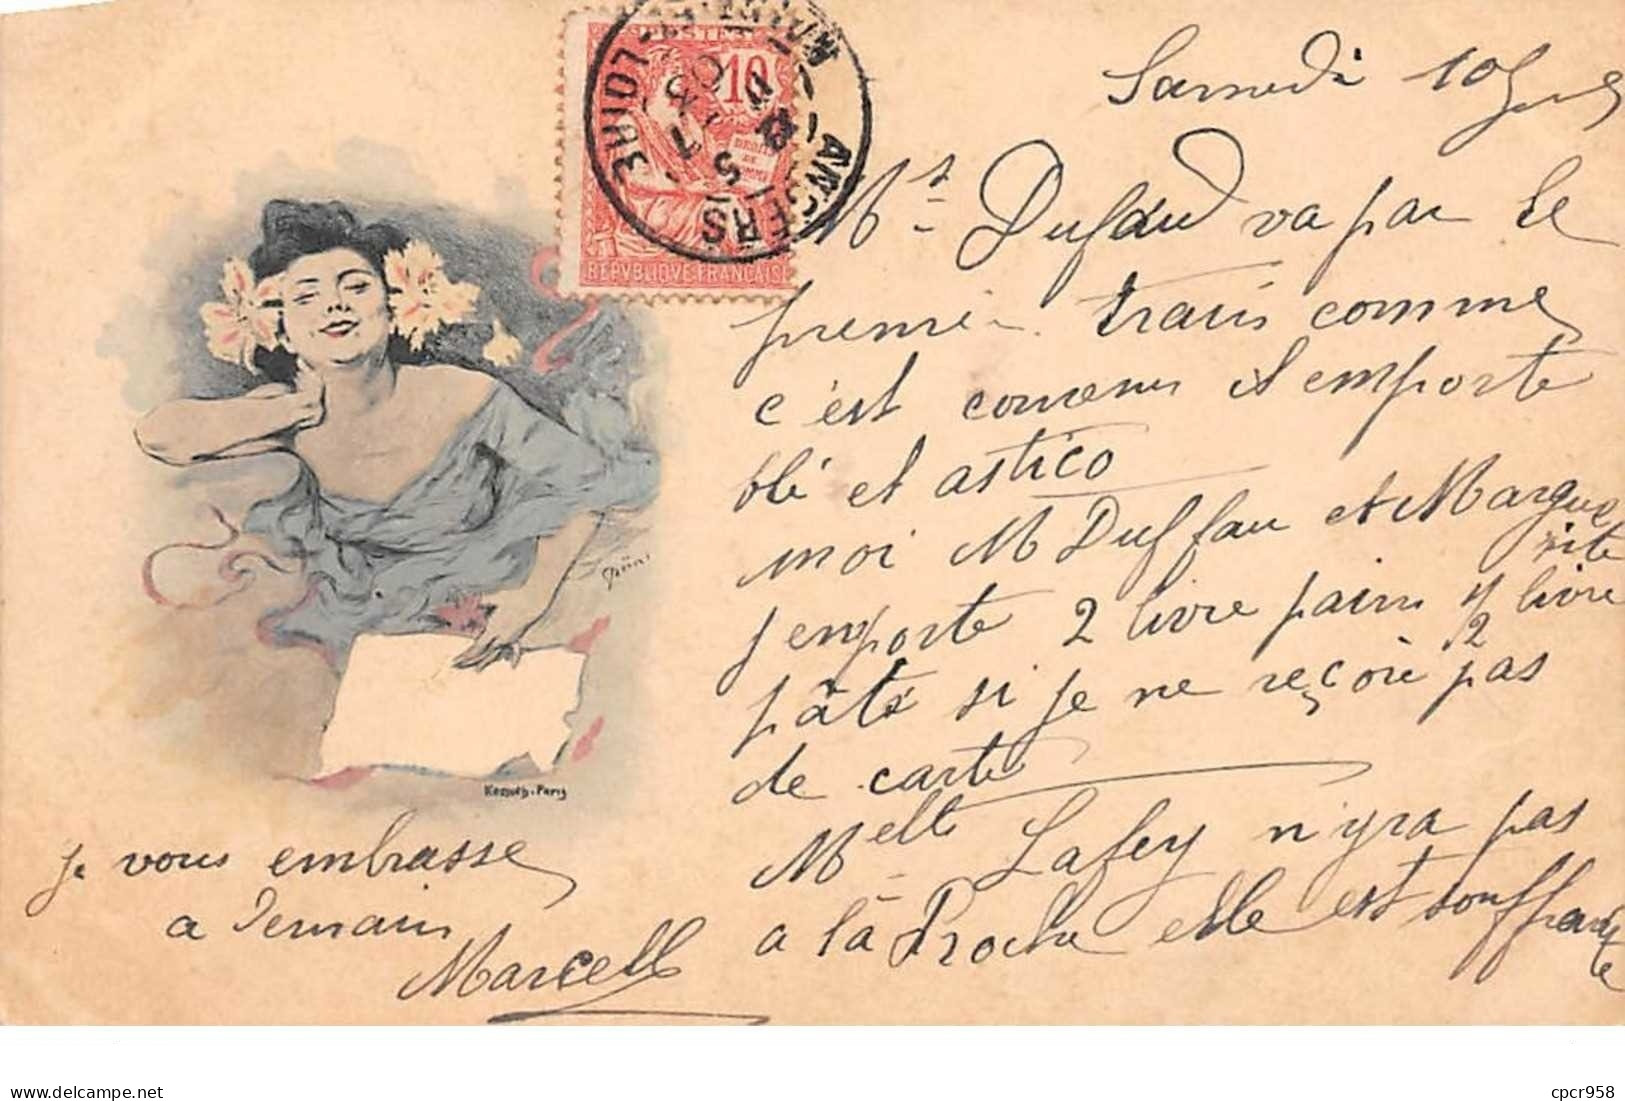 Samedi 10
Mr Dufau va par le
premier train comme
c'est convenu et emporte
blé et asticO
moi M Duffau et Margue
rite
j emporte 2 livre pain 1/2 livre
pâté si je ne reçoie pas
de carte
Melle Lafey n'yra pas
a là Roche elle est souffrante
je vous embrasse
a demain
Marcelle
10
POSTES
DROITS
DE
REPVBLIQVE FRANÇAISE
ANGERS
LOIRE
5
03
Kossuth. Paris
cpcr958